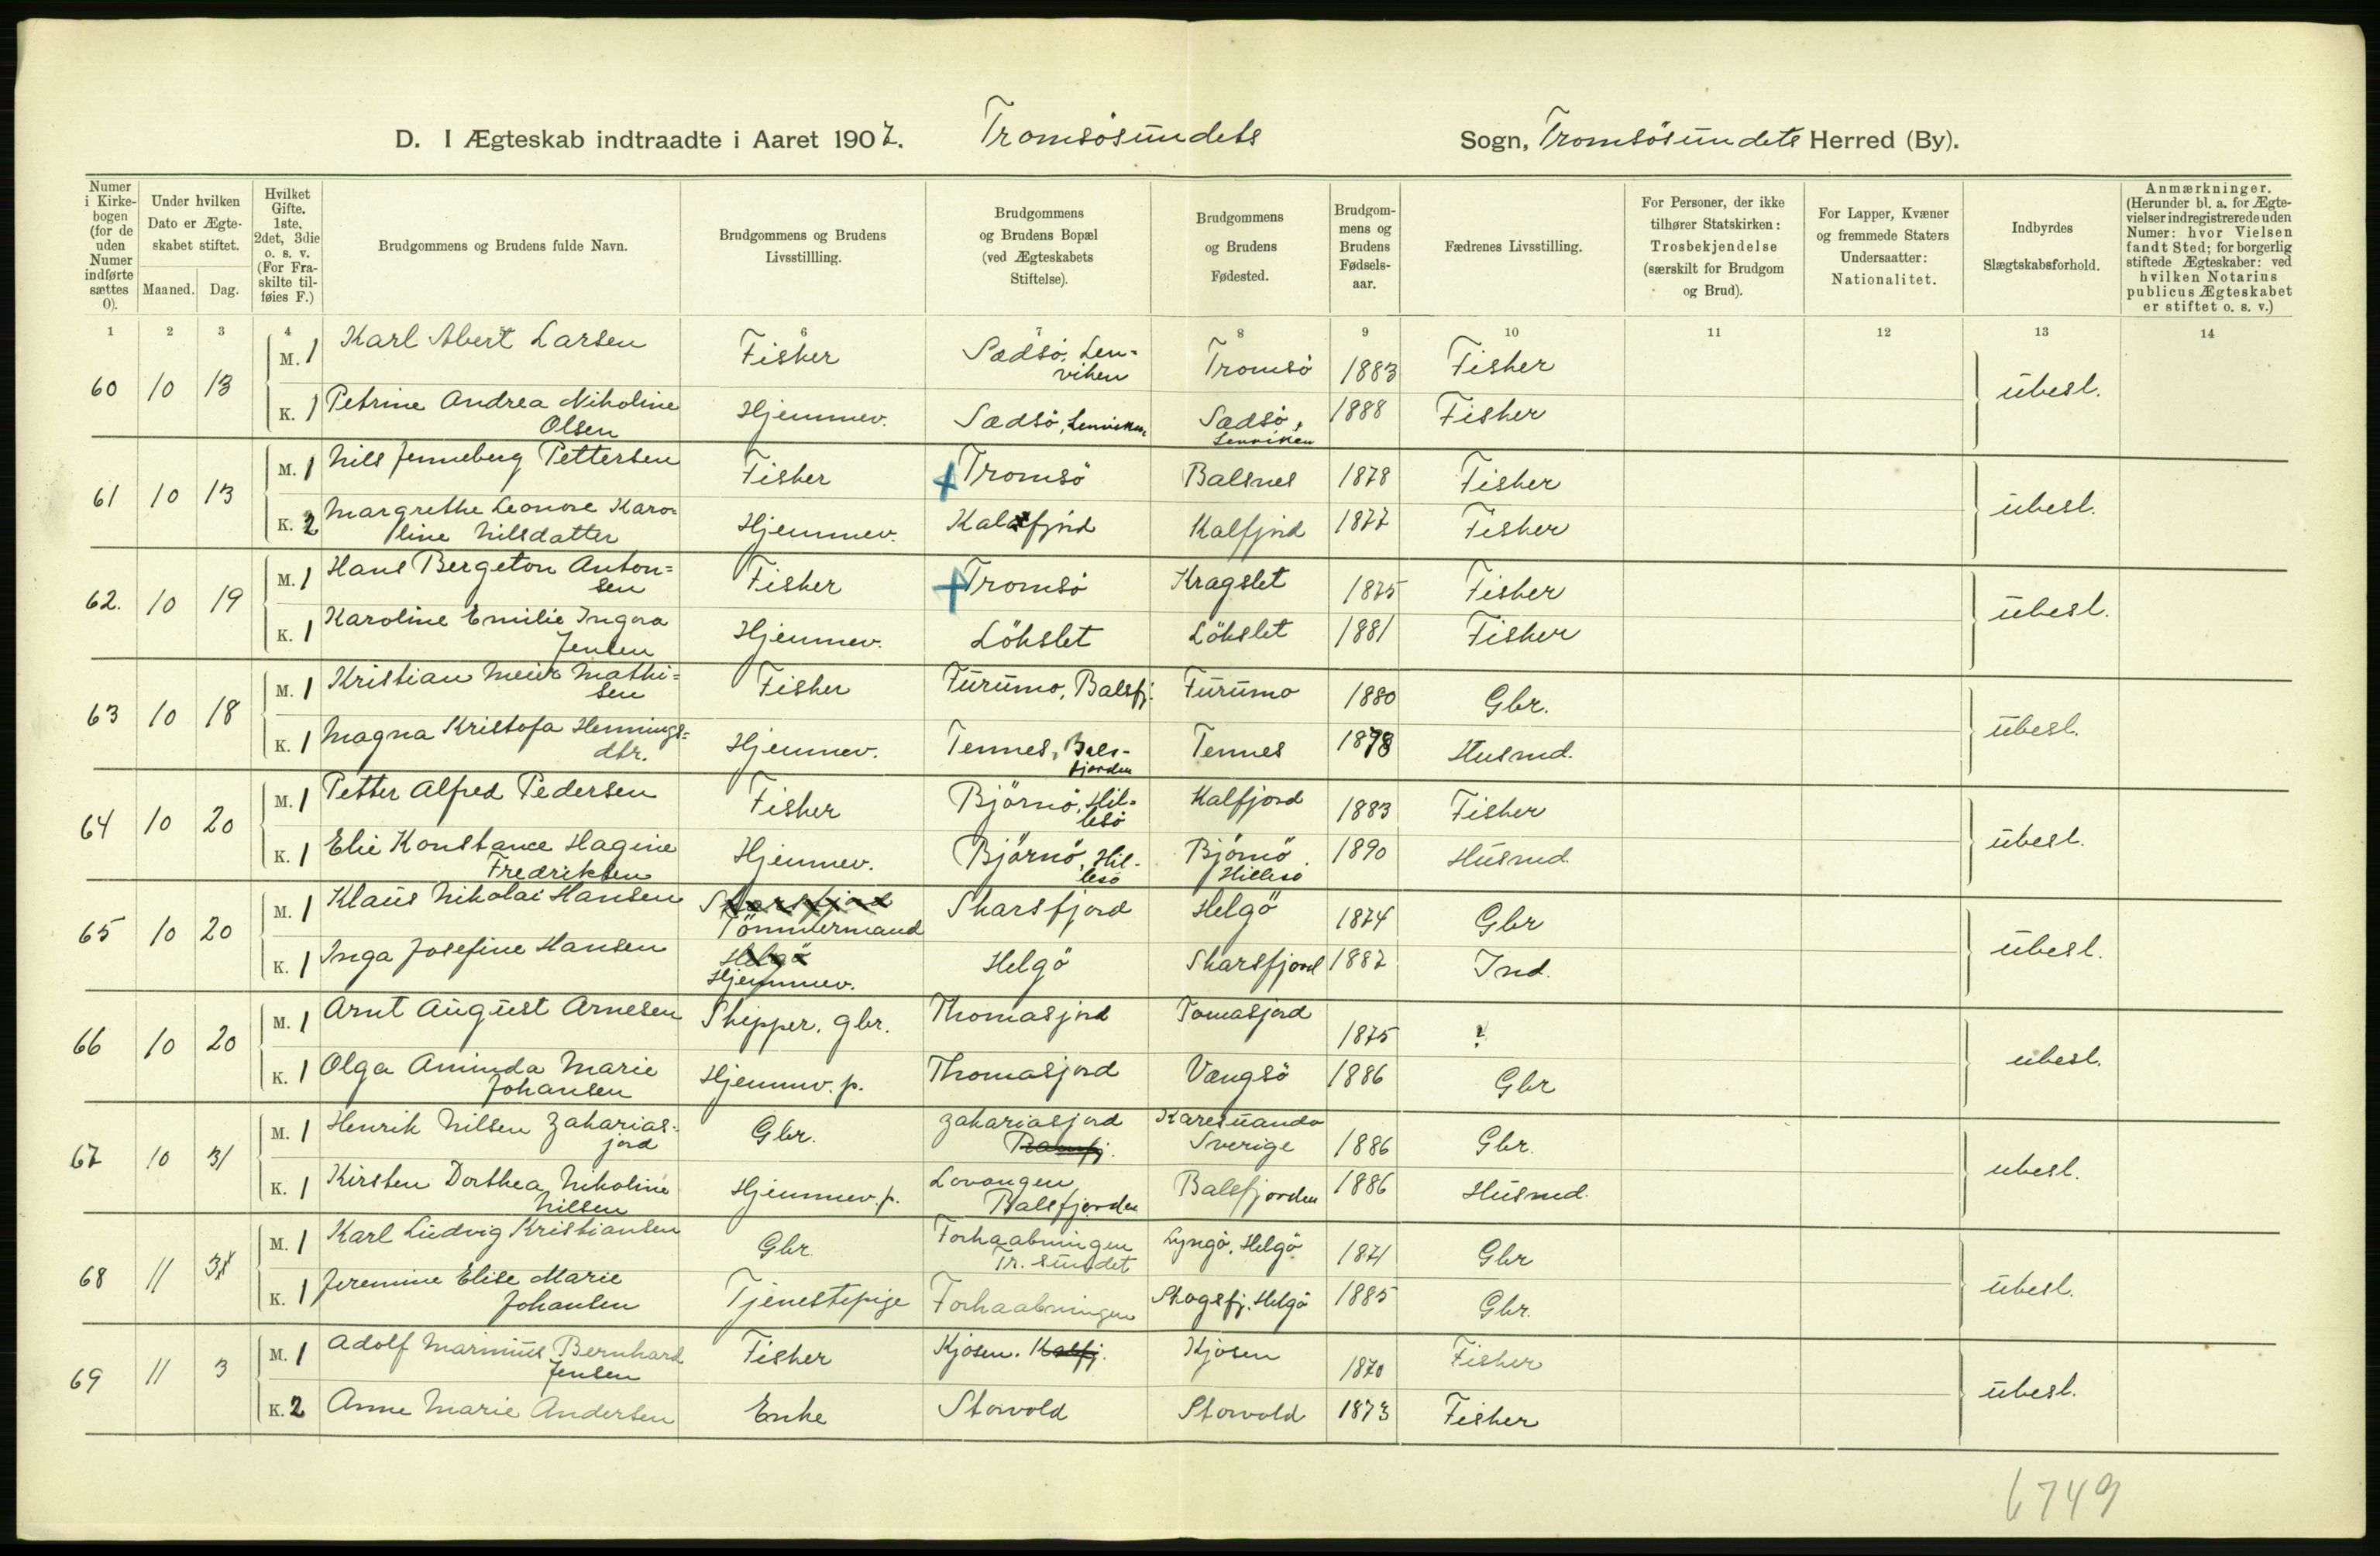 D. I Ægteskab indtraadte i Aaret 1907. Tromsösundets Sogn, Tromsösundets Herred (By).
Numer i Kirkebogen (for de uden Numer indførte sættes 0).
Under hvilken Dato er Ægteskabet stiftet.
Maaned. Dag.
Hvilket Gifte. 1ste, 2det, 3die o. s. v. (For Fraskilte tilføies F.)
Brudgommens og Brudens fulde Navn.
Brudgommens og Brudens Livsstillling.
Brudgommens og Brudens Bopæl (ved Ægteskabets Stiftelse).
Brudgommens og Brudens Fødested.
Brudgommens og Brudens Fødselsaar.
Fædrenes Livsstilling.
For Personer, der ikke tilhører Statskirken: Trosbekjendelse (særskilt for Brudgom og Brud).
For Lapper, Kvæner og fremmede Staters Undersaatter: Nationalitet.
Indbyrdes Slægtskabsforhold.
Anmærkninger. (Herunder bl. a. for Ægtevielser indregistrerede uden Numer: hvor Vielsen fandt Sted; for borgerlig stiftede Ægteskaber: ved hvilken Notarius publicus Ægteskabet er stiftet o. s. v.)
1 2 3 4 5 6 7 8 9 10 11 12 13 14
60 10 13 M. 1 Karl Abert Larsen Fisker Sædsö, Lenviken Tromsö 1883 Fisker ubesl.
K. 1 Petrine Andrea Nikoline Olsen Hjemmev. Sædsö, Lenviken Sædsö, Lenviken 1888 Fisker
61 10 13 M. 1 Nils Jenneberg Pettersen Fisker Tromsö Balsnes 1878 Fisker ubesl.
K. 2 Margrethe Leonore Karoline Nilsdatter Hjemmev. Kalfjord Kalfjord 1877 Fisker
62. 10 19 M. 1 Hans Bergeton Antonsen Fisker Tromsö Kragslet 1875 Fisker ubesl.
K. 1 Karoline Emilie Ingora Jensen Hjemmev. Lökslet Lökslet 1881 Fisker
63 10 18 M. 1 Kristian Meier Mathisen Fisker Furumo, Balsfj. Furumo 1880 Gbr. ubesl.
K. 1 Magna Kristofa Henningsdtr. Hjemmev. Tennes, Balsfjorden Tennes 1878 Husmd.
64 10 20 M. 1 Petter Alfred Pedersen Fisker Björnö, Hillesö Kalfjord 1883 Fisker ubesl.
K. 1 Elie Konstance Hagine Fredriksen Hjemmev. Björnö, Hillesö Björnö, Hillesö 1890 Husmd.
65 10 20 M. 1 Klaus Nikolai Hansen Skarsfjord Tömmermand Skarsfjord Helgö 1874 Gbr ubesl.
K. 1 Inga Josefine Hansen Helgö Hjemmev. Helgö Skarsfjord 1887 Ind.
66 10 20 M. 1 Arnt August Arnesen Skipper, gbr. Thomasjord Tomasjord 1875 ? ubesl.
K. 1 Olga Aminda Marie Johansen Hjemmv. p. Thomasjord Vengsö 1886 Gbr
67 10 31 M. 1 Henrik Nilsen Zakariasjord Gbr. Zakariasjord Ramfj. Karesuando Sverige 1886 Gbr. ubesl.
K. 1 Kirsten Dorthea Nikoline Nilsen Hjemmev. p. Lovangen Balsfjorden Balsfjorden 1886 Husmd.
68 11 3 M. 1 Karl Ludvig Kristiansen Gbr. Forhaabningen Tr. sundet Lyngö, Helgö 1871 Gbr ubesl.
K. 1 Jeremine Elise Marie Johansen Tjenestepige Forhaabningen Skogsfj. Helgö 1885 Gbr.
69 11 3 M. 1 Adolf Marinius Bernhard Jensen Fisker Kjosen. Kalfj. Kjosen 1870 Fisker ubesl.
K. 2 Anne Marie Andersen Enke Storvold Storvold 1873 Fisker
6749